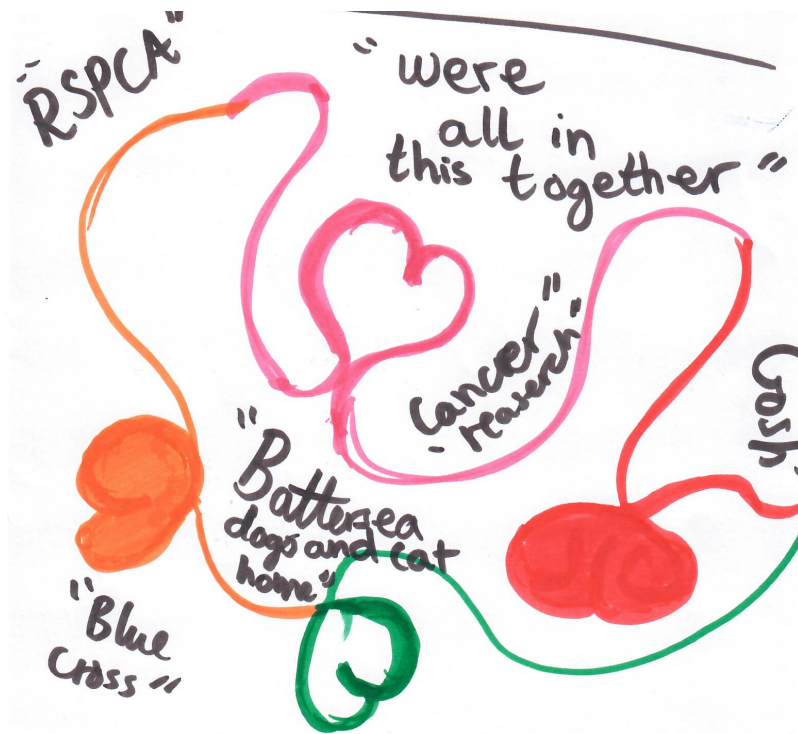 "RSPCA"
"were
all in
this together"
Cancer"
reaserch"
Gosh"
"Battersea
dogs and cat
home"
"Blue
cross"